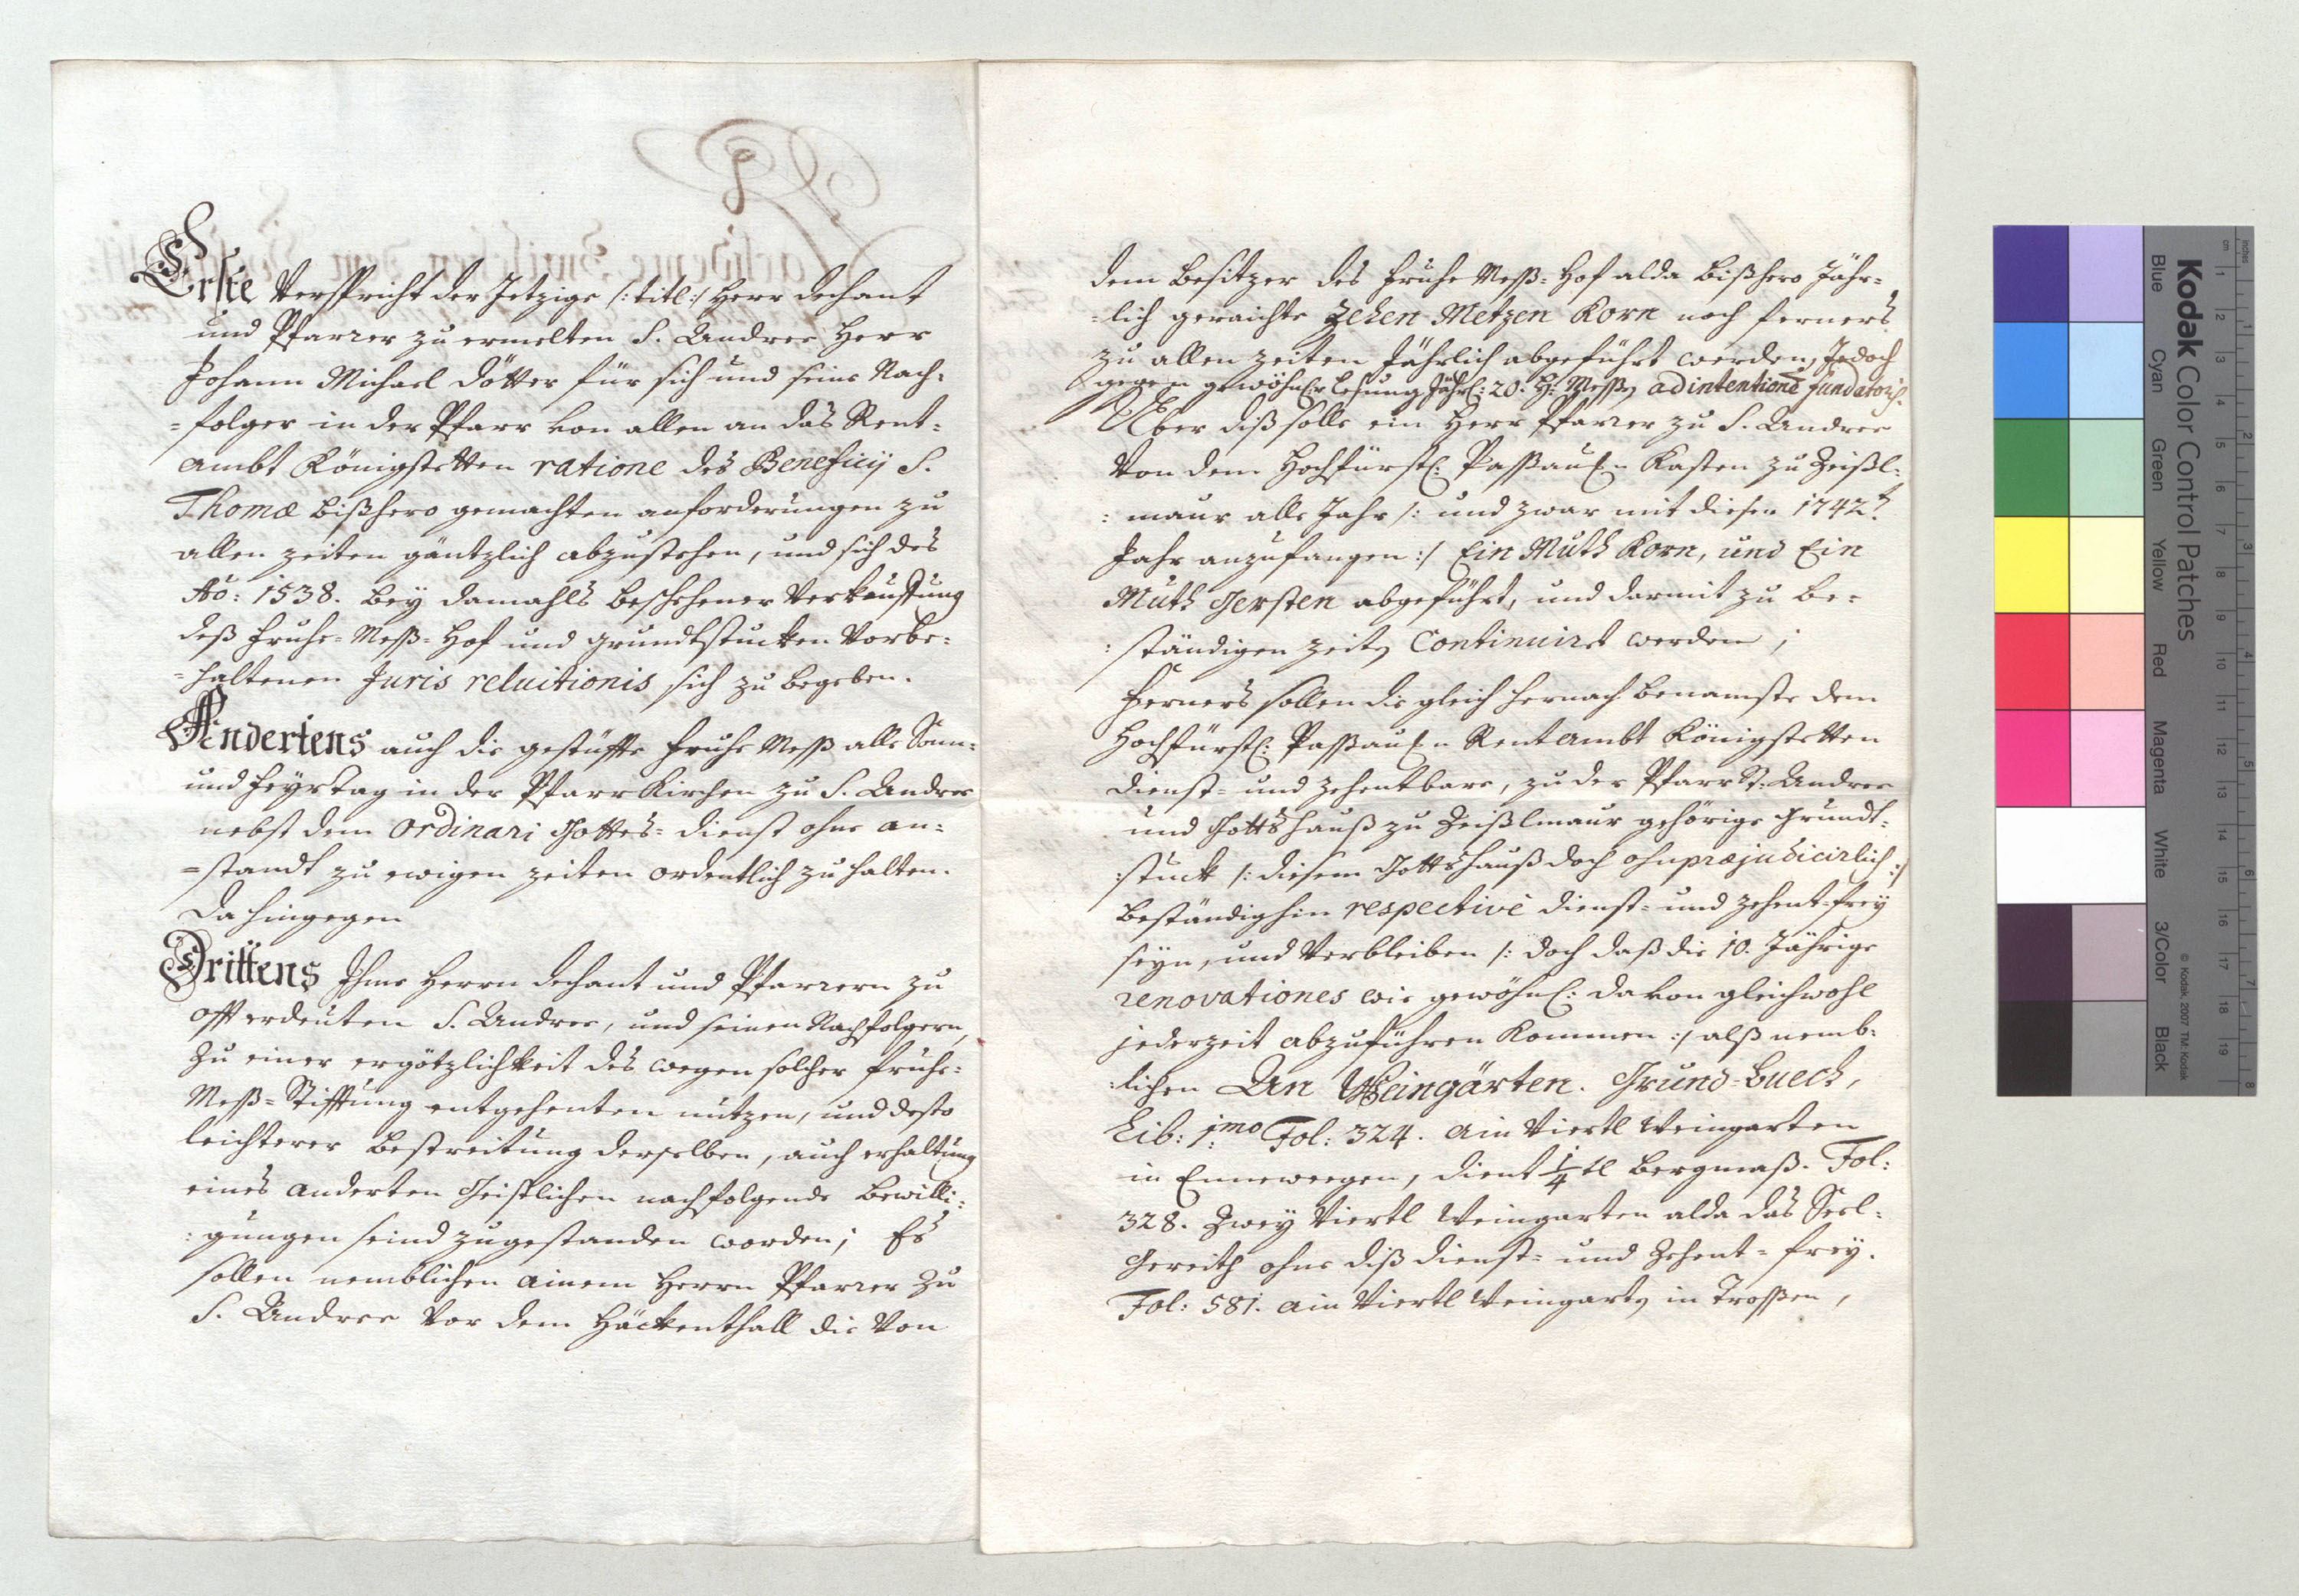 Erste Verspricht der Jetzige /: titl :/ Herr Dechant
und Pfarrer zu ermelten S. Andree Herr
Johann Michael Dötter für sich und seine Nach-
=folger in der Pfarr von allen an das Rent-
ambt Königstetten ratione des Beneficij S.
Thomæ bißhero gemachten anforderungen zu
allen zeiten gäntzlich abzustehen, und sich des
Ao: 1538. bey damahls beschehener Verkauffung
deß Fruhe-Meß-Hof und grundtstucken Vorbe-
=haltenen Juris reluitionis sich zu begeben.
Andertens auch die gestüffte Fruhe Meß alle Sonn-
und Feyrtag in der Pfarr Kirchen zu S. Andree
nebst dem ordinari Gottes-dienst ohne an-
=standt zu ewigen zeiten ordentlich zu halten.
Da hingegen
Drittens Ihme Herrn Dechant und Pfarrern zu
offt erdeuten S. Andree, und seinen Nachfolgern,
zu einer ergötzlichkeit des wegen solcher Fruhe-
Meß-Stifftung entgehenten nutzen, und desto
leichterer bestreitung derselben, auch erhaltung
eines anderten Geistlichen nachfolgende bewilli-
:gungen seind zugestanden worden; Es
sollen nemblichen ainem Herrn Pfarrer zu
S. Andree Vor dem Häckenthall die Von
dem Besitzer des Fruhe Meß-Hof alda bißhero Jähr-
=lich geraichte zehen Metzen Korn noch ferners
zu allen zeiten Jährlich abgeführt werden, Jedoch
gegen gewöhnl:r lesung Jährl: 20. H: Messen ad intentione fundatoris.
Über diß solle ein Herr Pfarrer zu S. Andree
Von dem Hochfürstl: Passaul:n Kasten zu Zeißl-
:maur alle Jahr /: und zwar mit diesen 1742t.
Jahr anzufangen :/ Ein Muth Korn, und Ein
Muth Gersten abgeführt, und darmit zu be-
:ständigen zeiten Continuiret werden;
Ferners sollen die gleich hernach benamste dem
Hochfürstl: Passaul:n Rentambt Königstetten
dienst- und zehentbare, zu der Pfarr St: Andree
und Gottshauß zu Zeißlmaur gehörige Grundt-
:stuck /: diesem Gottshauß doch ohnpræjudicirlich :/
beständighin respectivè dienst- und zehent-frey
seyn, und Verbleiben /: doch daß die 10. Jährige
renovationes wie gewöhnl: davon gleichwohl
jederzeit abzuführen kommen :/ alß nemb-
:lichen An Weingärten. Grund-buech,
Lib: 1:mo Fol: 324. ain Viertl Weingarten
in Enneweegen, dient 1/4tl bergmaß. Fol:
328. Zwey Viertl Weingarten alda das Seel-
Gereith ohne diß dienst- und Zehent-frey.
Fol: 581. ain Viertl Weingarten in Trossen,
Kodak Color Control Patches
Blue Cyan Green Yellow Red Magenta White 3/Color Black
© Kodak, 2007 TM: Kodak
inches
cm
1 2 3 4 5 6 7 8 9 10 11 12 13 14 15 16 17 18 19
1 2 3 4 5 6 7 8